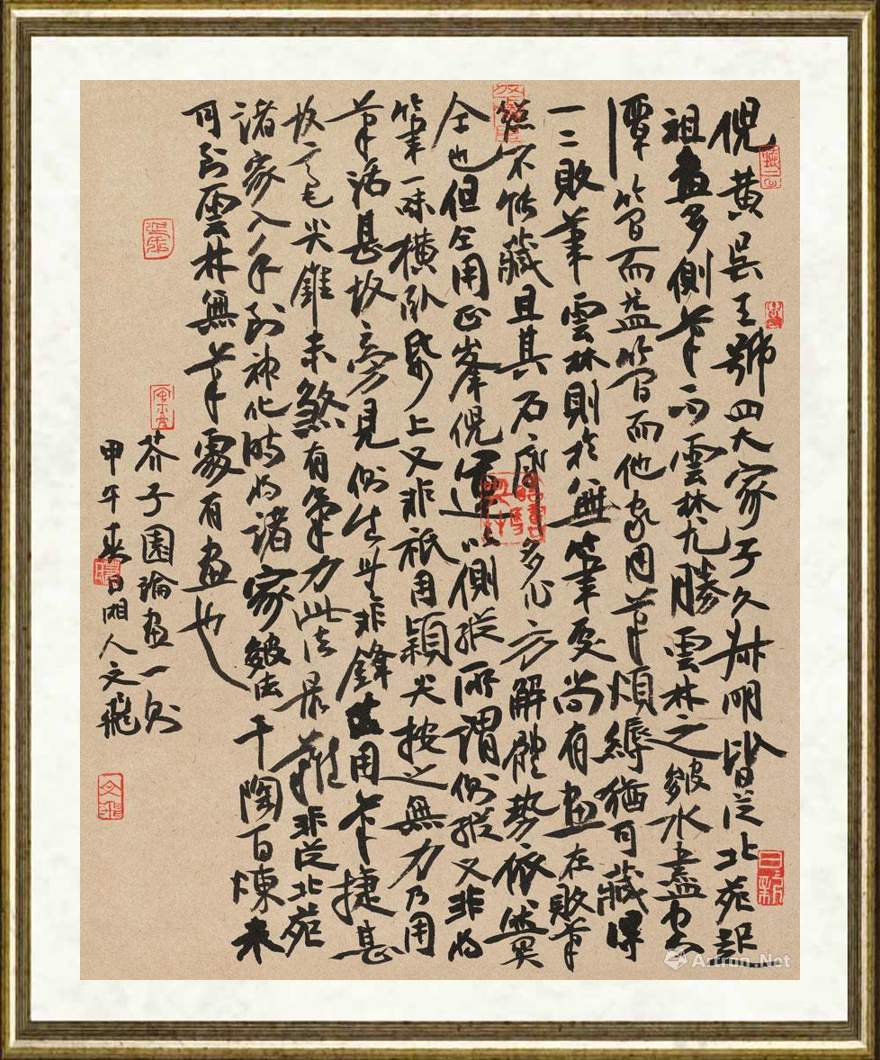 倪黄吴王號四大家子久叔明皆從北苑起
祖畫多側筆而雲林尤勝雲林之皴水盡
潭簡而益簡而他家用筆煩縟猶可藏得
一二敗筆雲林則於無筆處尚有畫在敗筆
總不能藏且其石廓多作方解體勢依然關
仝也但仝用正峯倪運以側爰所謂側爰又非將
筆一味橫臥紙上又非祇用穎尖按之無力乃用
筆活甚故旁見側出無非鋒法用筆捷甚
故毫尖錐末煞有氣力此法最難非從北苑
諸家入手到神化時將諸家皴法千陶百煉來
到雲林無筆處有畫也
芥子園論畫一則
甲午春日湘人文飛
Artron.Net